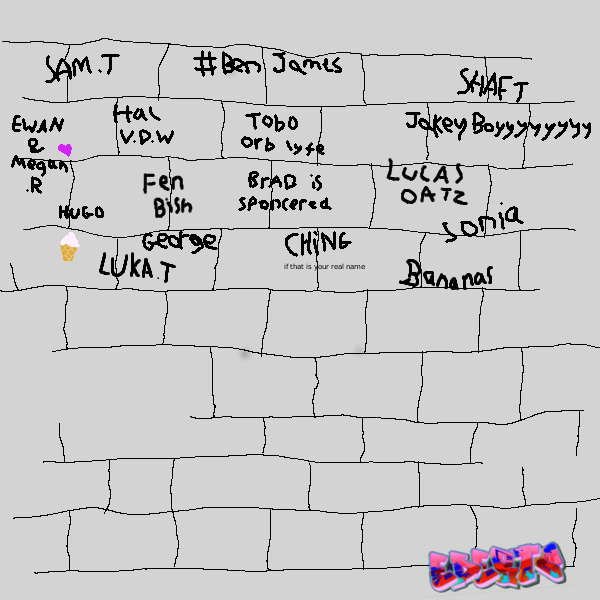 SAM.T
#Ben James
SHAFT
EWAN
&
Megan
.R
Hal
V.D.W
TOBO
Orb lyfe
Jakey Boyyyyyyyyy
Fen
Bish
BrAD is
sponcered
LUCAS
OATZ
HUGO
sonia
George
LUKA.T
CHiNG
if that is your real name
Bananas